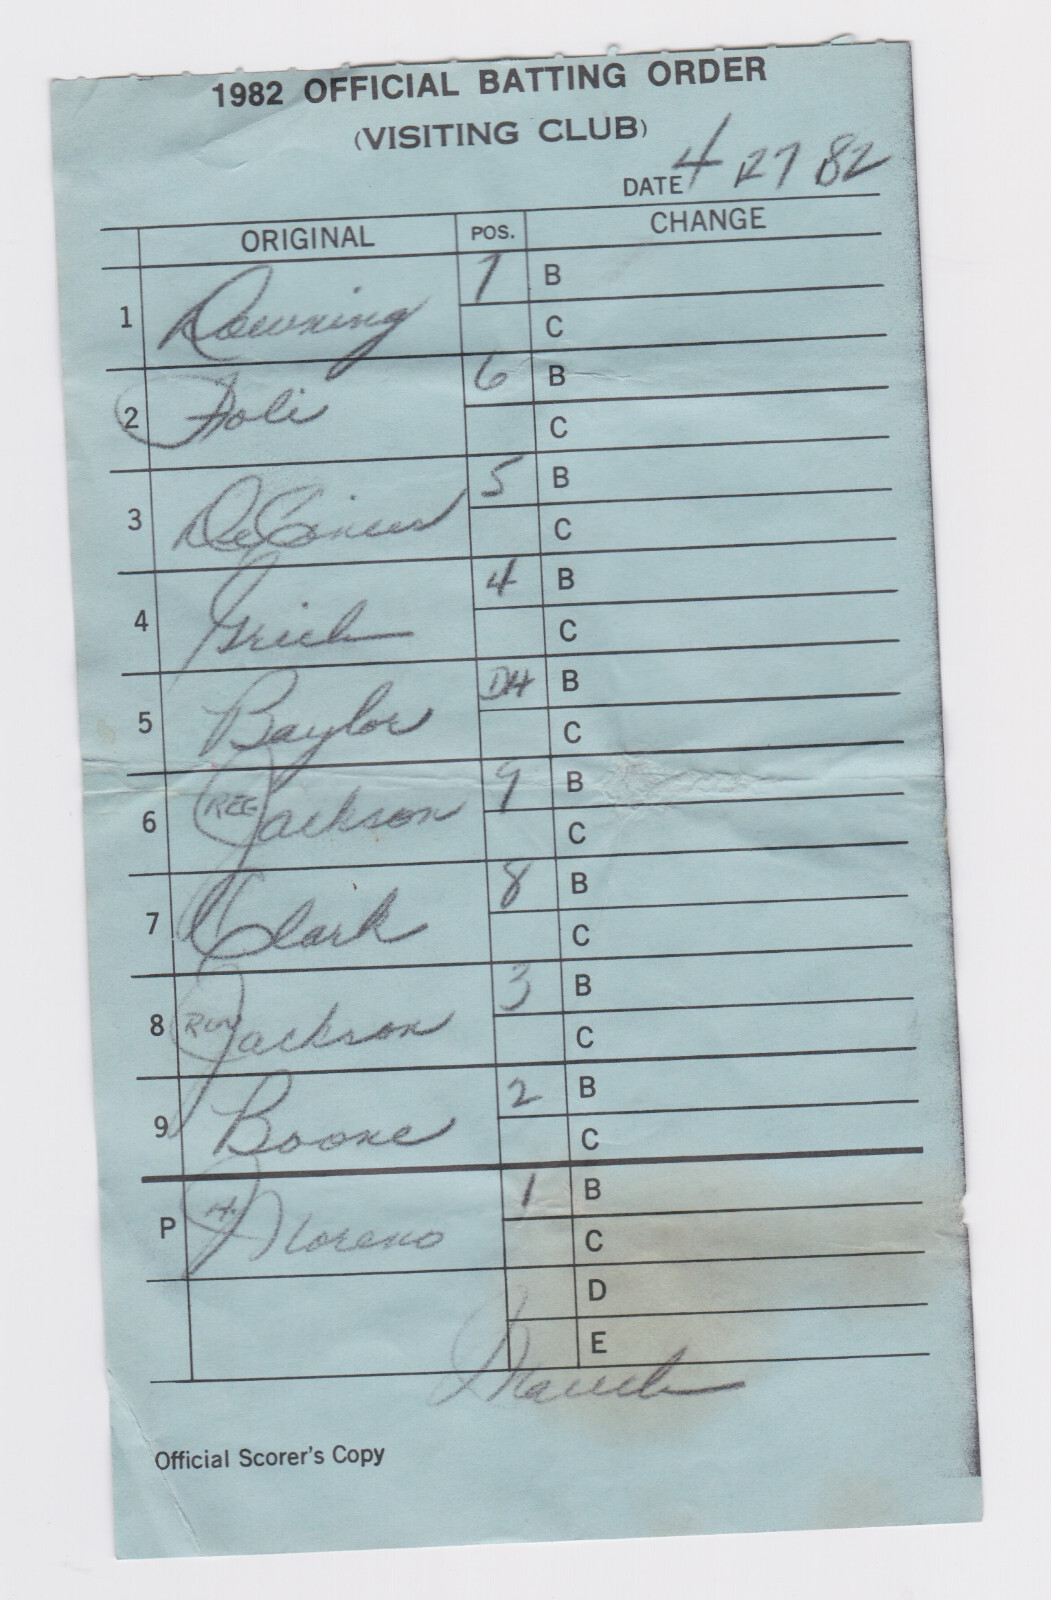 1982 OFFICIAL BATTING ORDER
(VISITING CLUB)
DATE 4 27 82
ORIGINAL POS. CHANGE
1 Downing 7 B
C
2 Foli 6 B
C
3 DeCinces 5 B
C
4 Grich 4 B
C
5 Baylor DH B
C
6 REG Jackson 9 B
C
7 Clark 8 B
C
8 RON Jackson 3 B
C
9 Boone 2 B
C
P Moreno 1 B
C
D
E
Mauch
Official Scorer's Copy